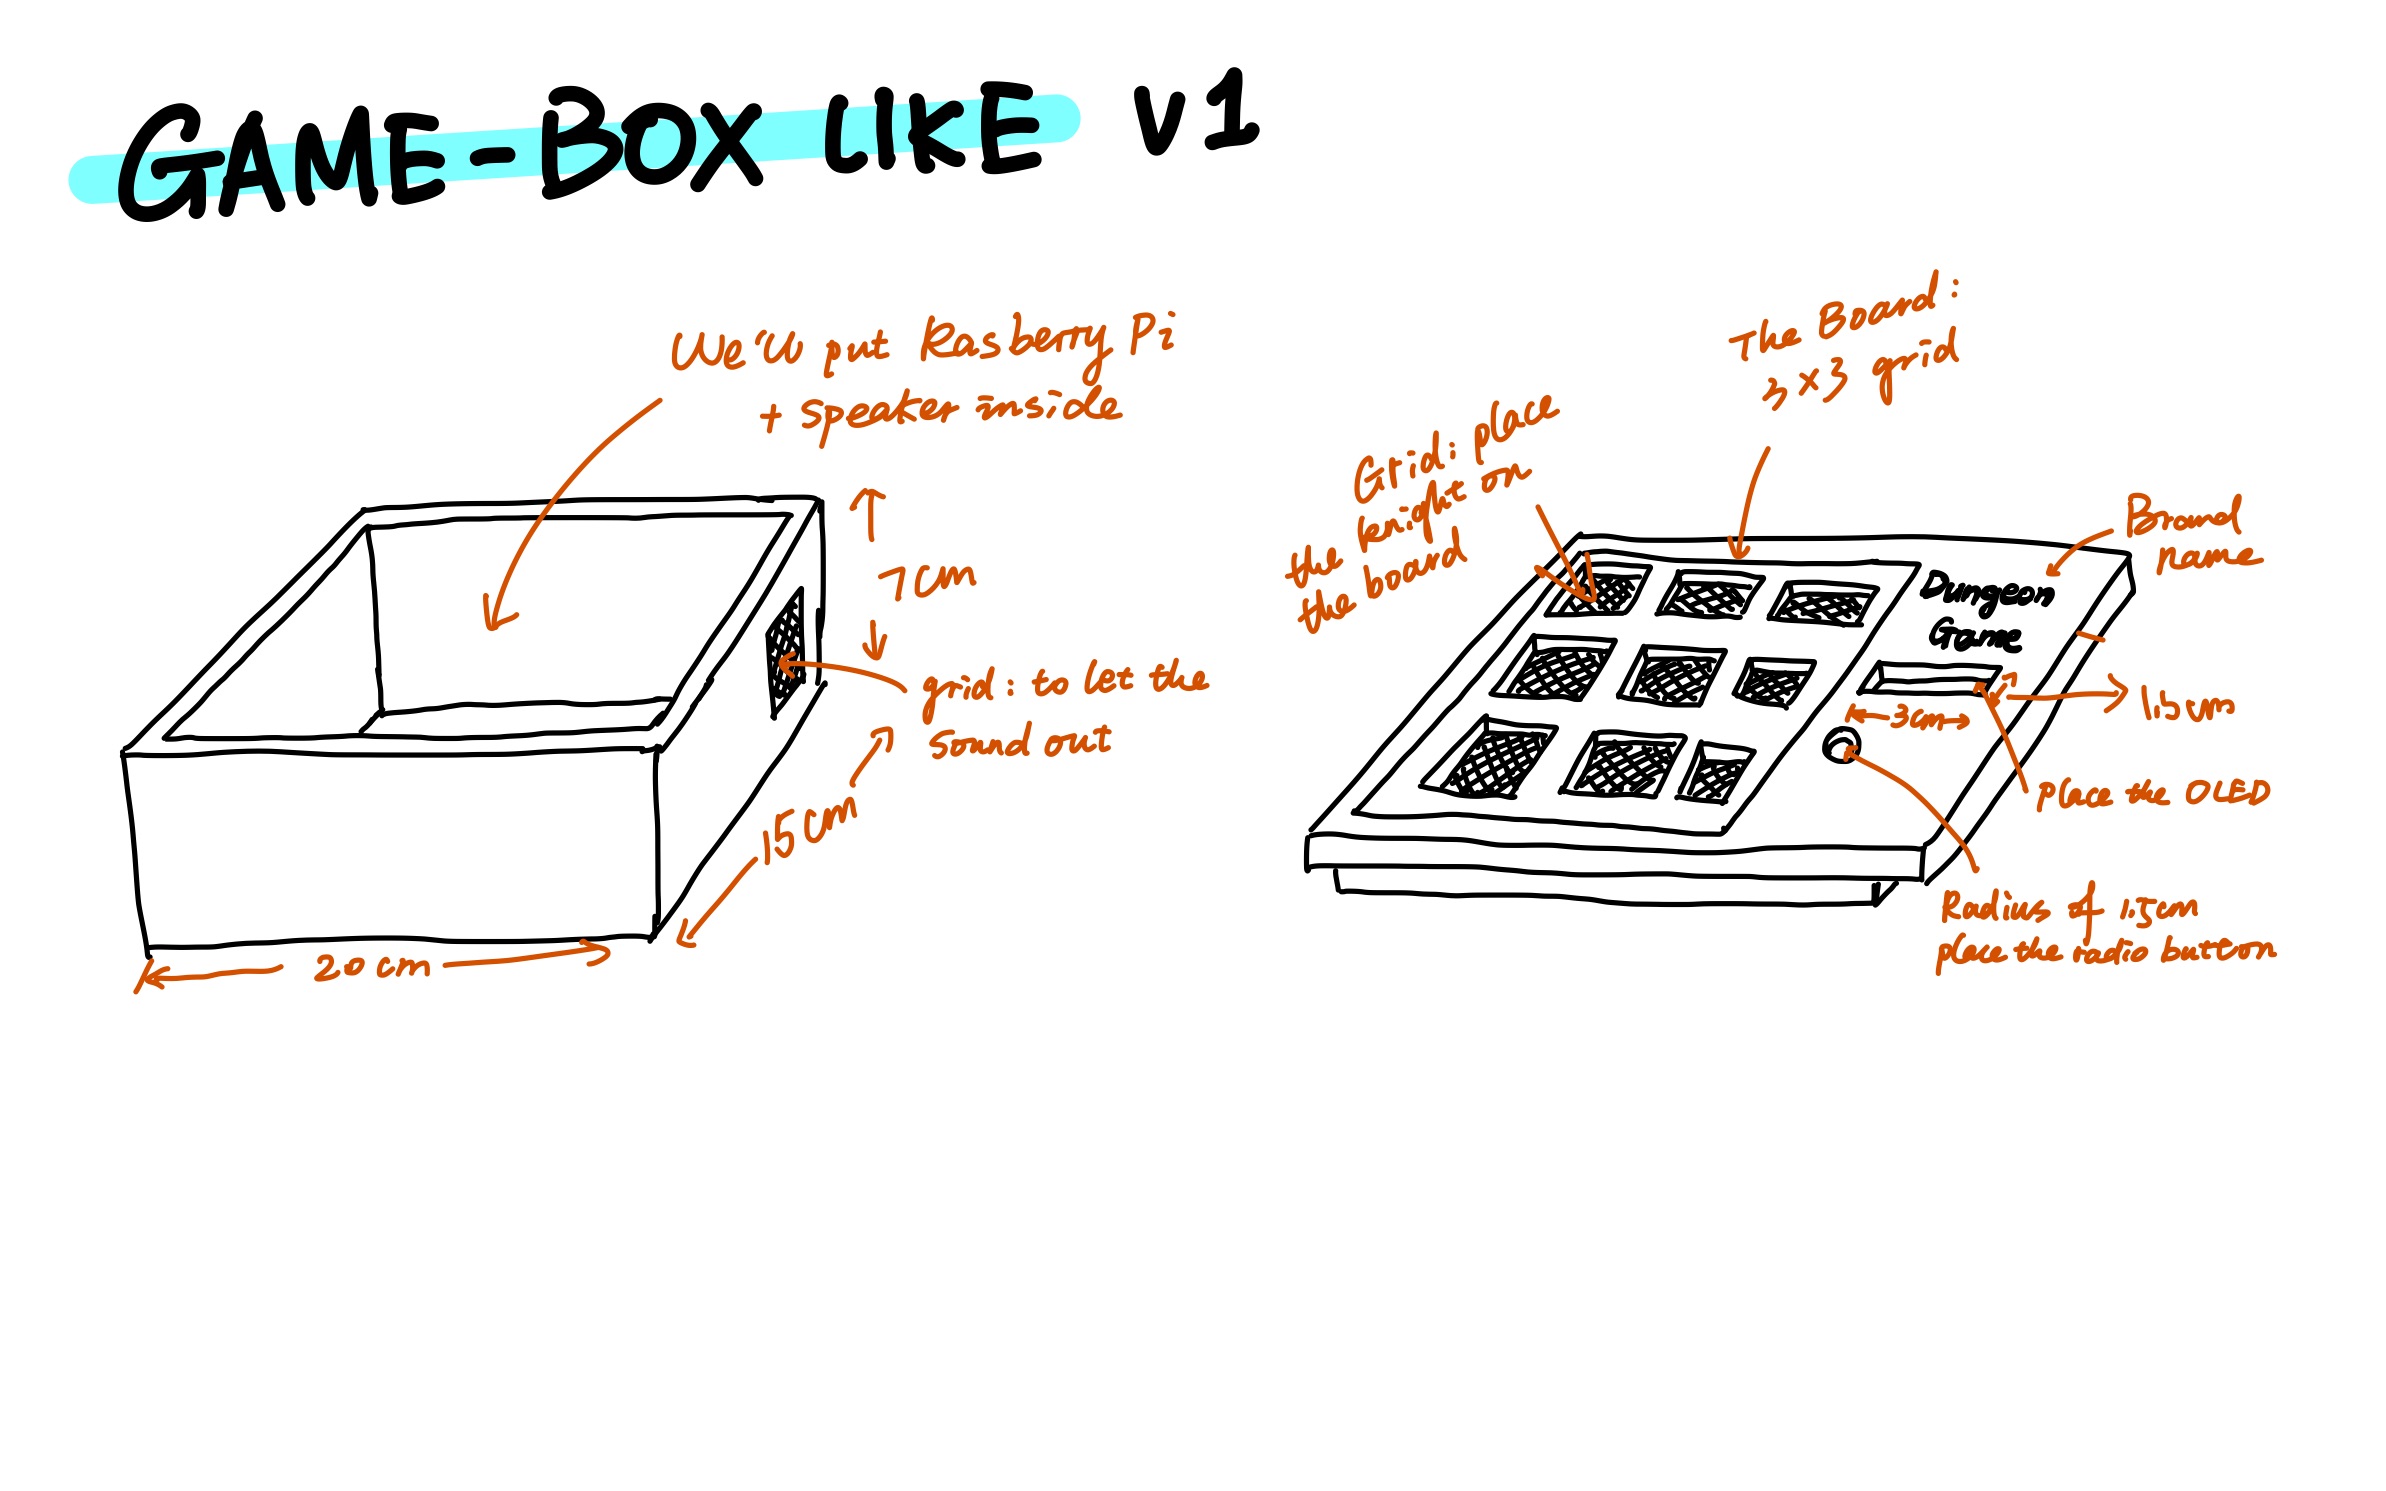 GAME-BOX LIKE V1
We'll put Rasberry Pi
+ speaker inside
7cm
grid: to let the
sound out
15cm
20 cm
The Board:
3x3 grid
Grid: place
the knight on
the board
Brand
name
Dungeon
Game
3cm
Place the OLED
Radius of 1.5cm
place the radio button